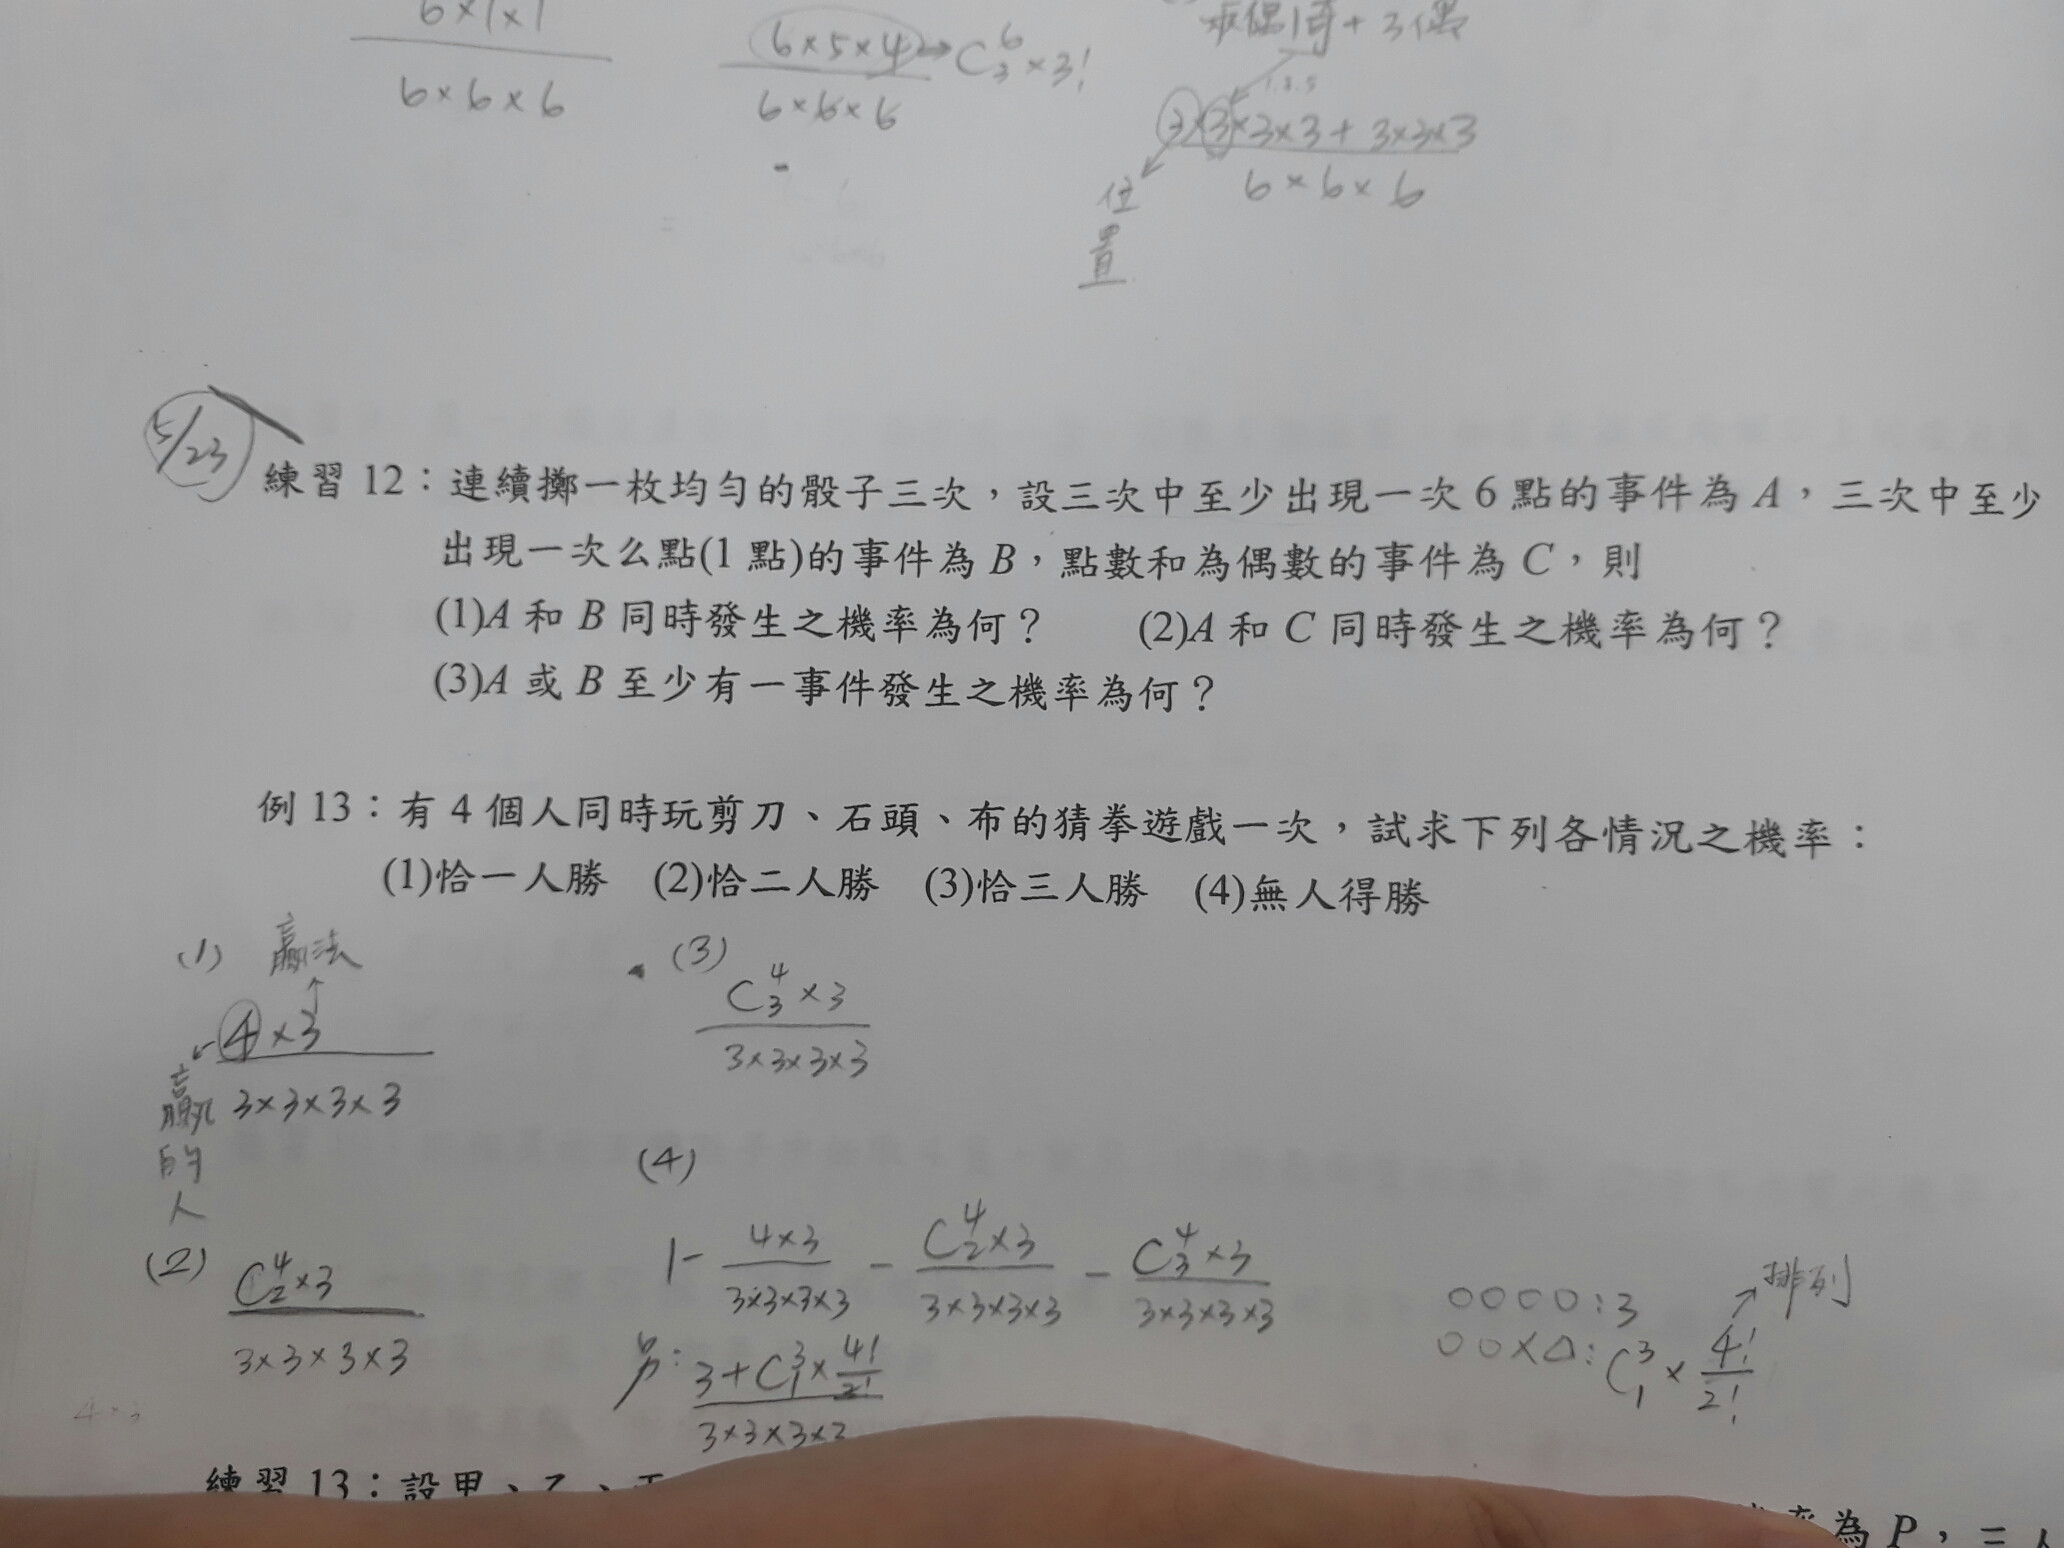 6×1×1
6×6×6
6×5×4→C⁶₃×3!
6×6×6
偶1奇+3偶
1.3.5
3×3×3×3+3×3×3
6×6×6
位置
5/23
練習 12：連續擲一枚均勻的骰子三次，設三次中至少出現一次 6 點的事件為 A，三次中至少
出現一次么點(1 點)的事件為 B，點數和為偶數的事件為 C，則
(1)A 和 B 同時發生之機率為何？ (2)A 和 C 同時發生之機率為何？
(3)A 或 B 至少有一事件發生之機率為何？
例 13：有 4 個人同時玩剪刀、石頭、布的猜拳遊戲一次，試求下列各情況之機率：
(1)恰一人勝 (2)恰二人勝 (3)恰三人勝 (4)無人得勝
(1) 贏法
4×3
3×3×3×3
贏的人
(3)
C⁴₃×3
3×3×3×3
(2)
C⁴₂×3
3×3×3×3
(4)
1- 4×3 - C⁴₂×3 - C⁴₃×3
3×3×3×3 3×3×3×3 3×3×3×3
另: 3+C³₁×4!/2!
3×3×3×3
○○○○:3
○○×△:C³₁×4!/2! →排列
練習 13：設甲、乙、
率為 P，三人